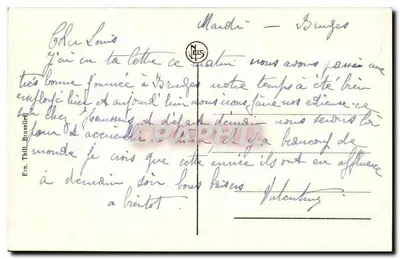 Mardi - Bruges
Cher Louis
j'ai eu ta lettre ce matin nous avons passé une
très bonne journée à Bruges notre temps a été bien
employé hier et aujourd'hui nous
chez demain nous serons là
pour il y a beaucoup de
monde je crois que cette année ils ont eu affluence
à demain soir bons baisers
a bientot. Valentine
NELS
Ern. Thill, Bruxelles
CPAPHIL